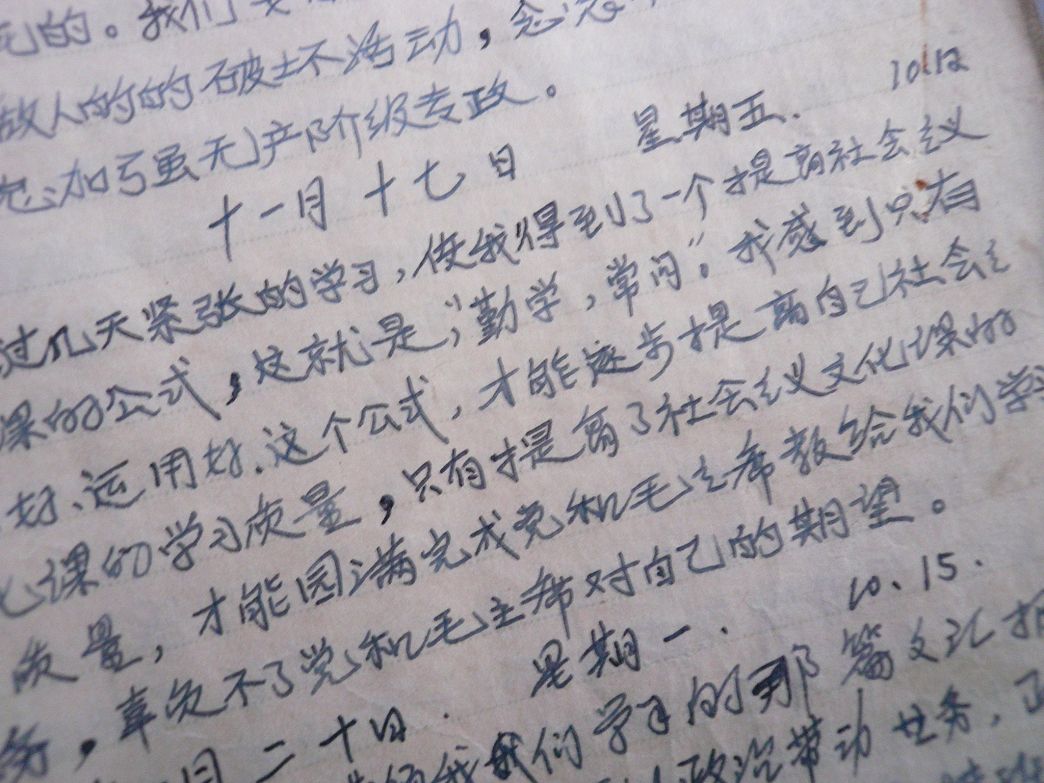 的。我们
敌人的的破坏活动，念念
忘加弓虽无产阶级专政。
十一月十七日 星期五. 10.12
过几天紧张的学习，使我得到了一个提高社会主义
课的公式，这就是，“勤学，常问”。我感到只有
好、运用好、这个公式，才能逐步提高自己社会主
课的学习质量，只有提高了社会主义文化课的
质量，才能园满完成党和毛主席教给我们学
务，辜负不了党和毛主席对自己的期望。
月二十日. 星期一. 10.15.
我们学习的那篇文汇报
政治带动业务，